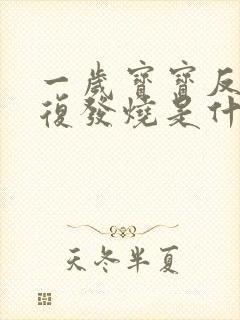 一歲寶寶反
復發燒是什
天冬半夏